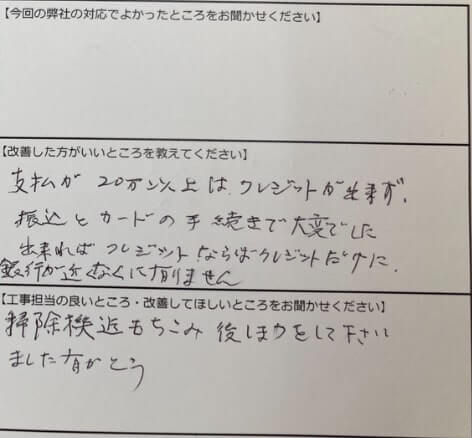 【今回の弊社の対応でよかったところをお聞かせください】
【改善した方がいいところを教えてください】
支払が 20万以上は、クレジットが出来ず、
振込とカードの手続きで大変でした
出来ればクレジットならばクレジットだけに、
銀行が近くなくに有りません
【工事担当の良いところ・改善してほしいところをお聞かせください】
掃除機迄もちこみ 後しまつをして下さい
ました有がとう